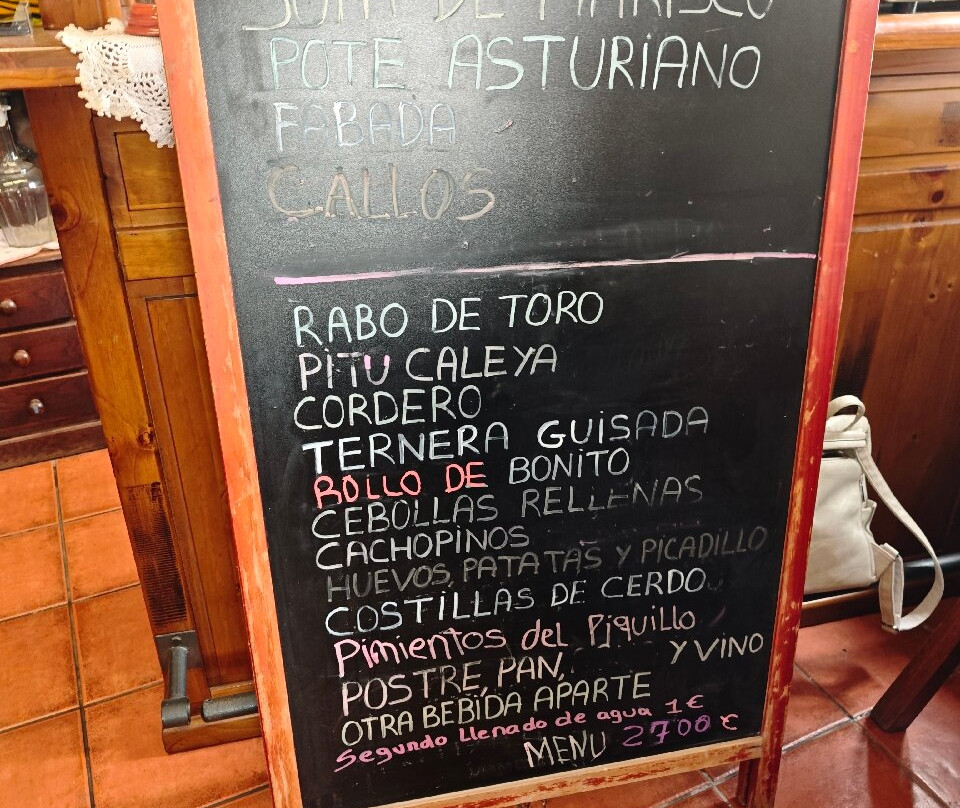 SOPA DE MARISCO
POTE ASTURIANO
FABADA
CALLOS
RABO DE TORO
PITU CALEYA
CORDERO
TERNERA GUISADA
ROLLO DE BONITO
CEBOLLAS RELLENAS
CACHOPINOS
HUEVOS, PATATAS Y PICADILLO
COSTILLAS DE CERDO
Pimientos del Piquillo
POSTRE, PAN, Y VINO
OTRA BEBIDA APARTE
Segundo llenado de agua 1€
MENU 2700 €